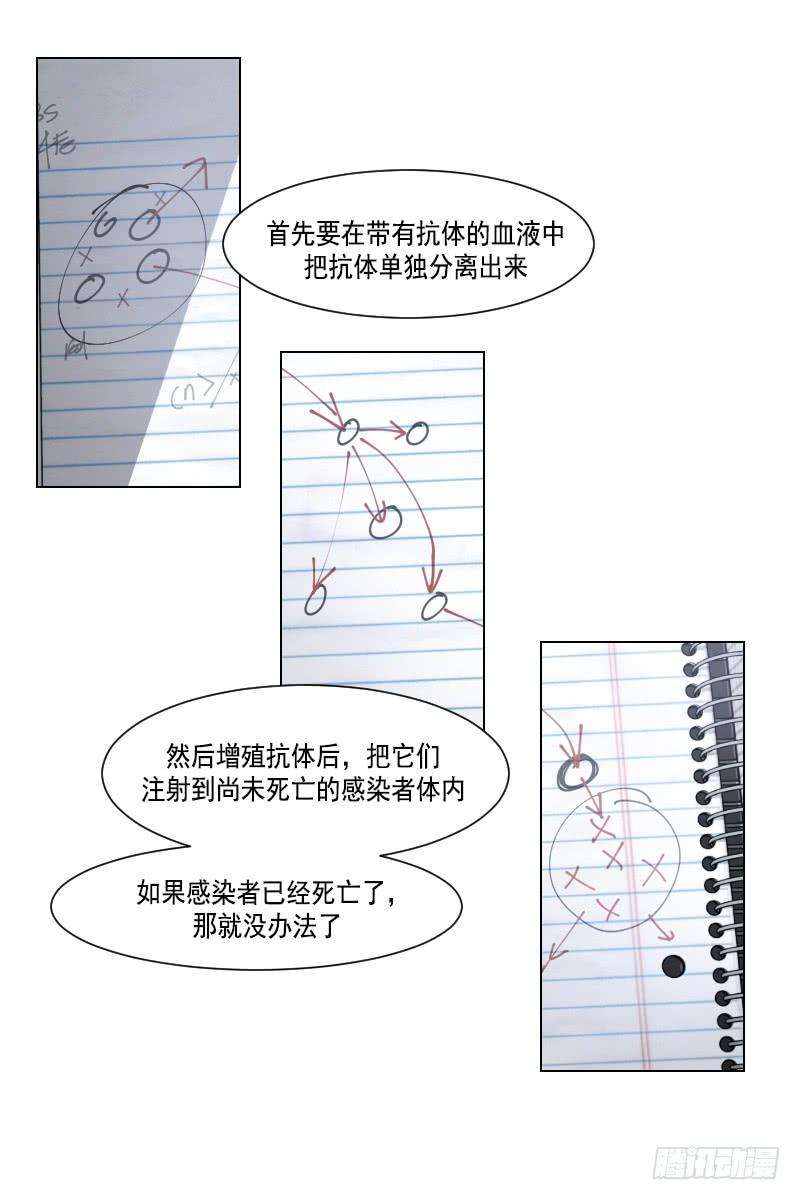 首先要在带有抗体的血液中
把抗体单独分离出来
然后增殖抗体后，把它们
注射到尚未死亡的感染者体内
如果感染者已经死亡了，
那就没办法了
腾讯动漫